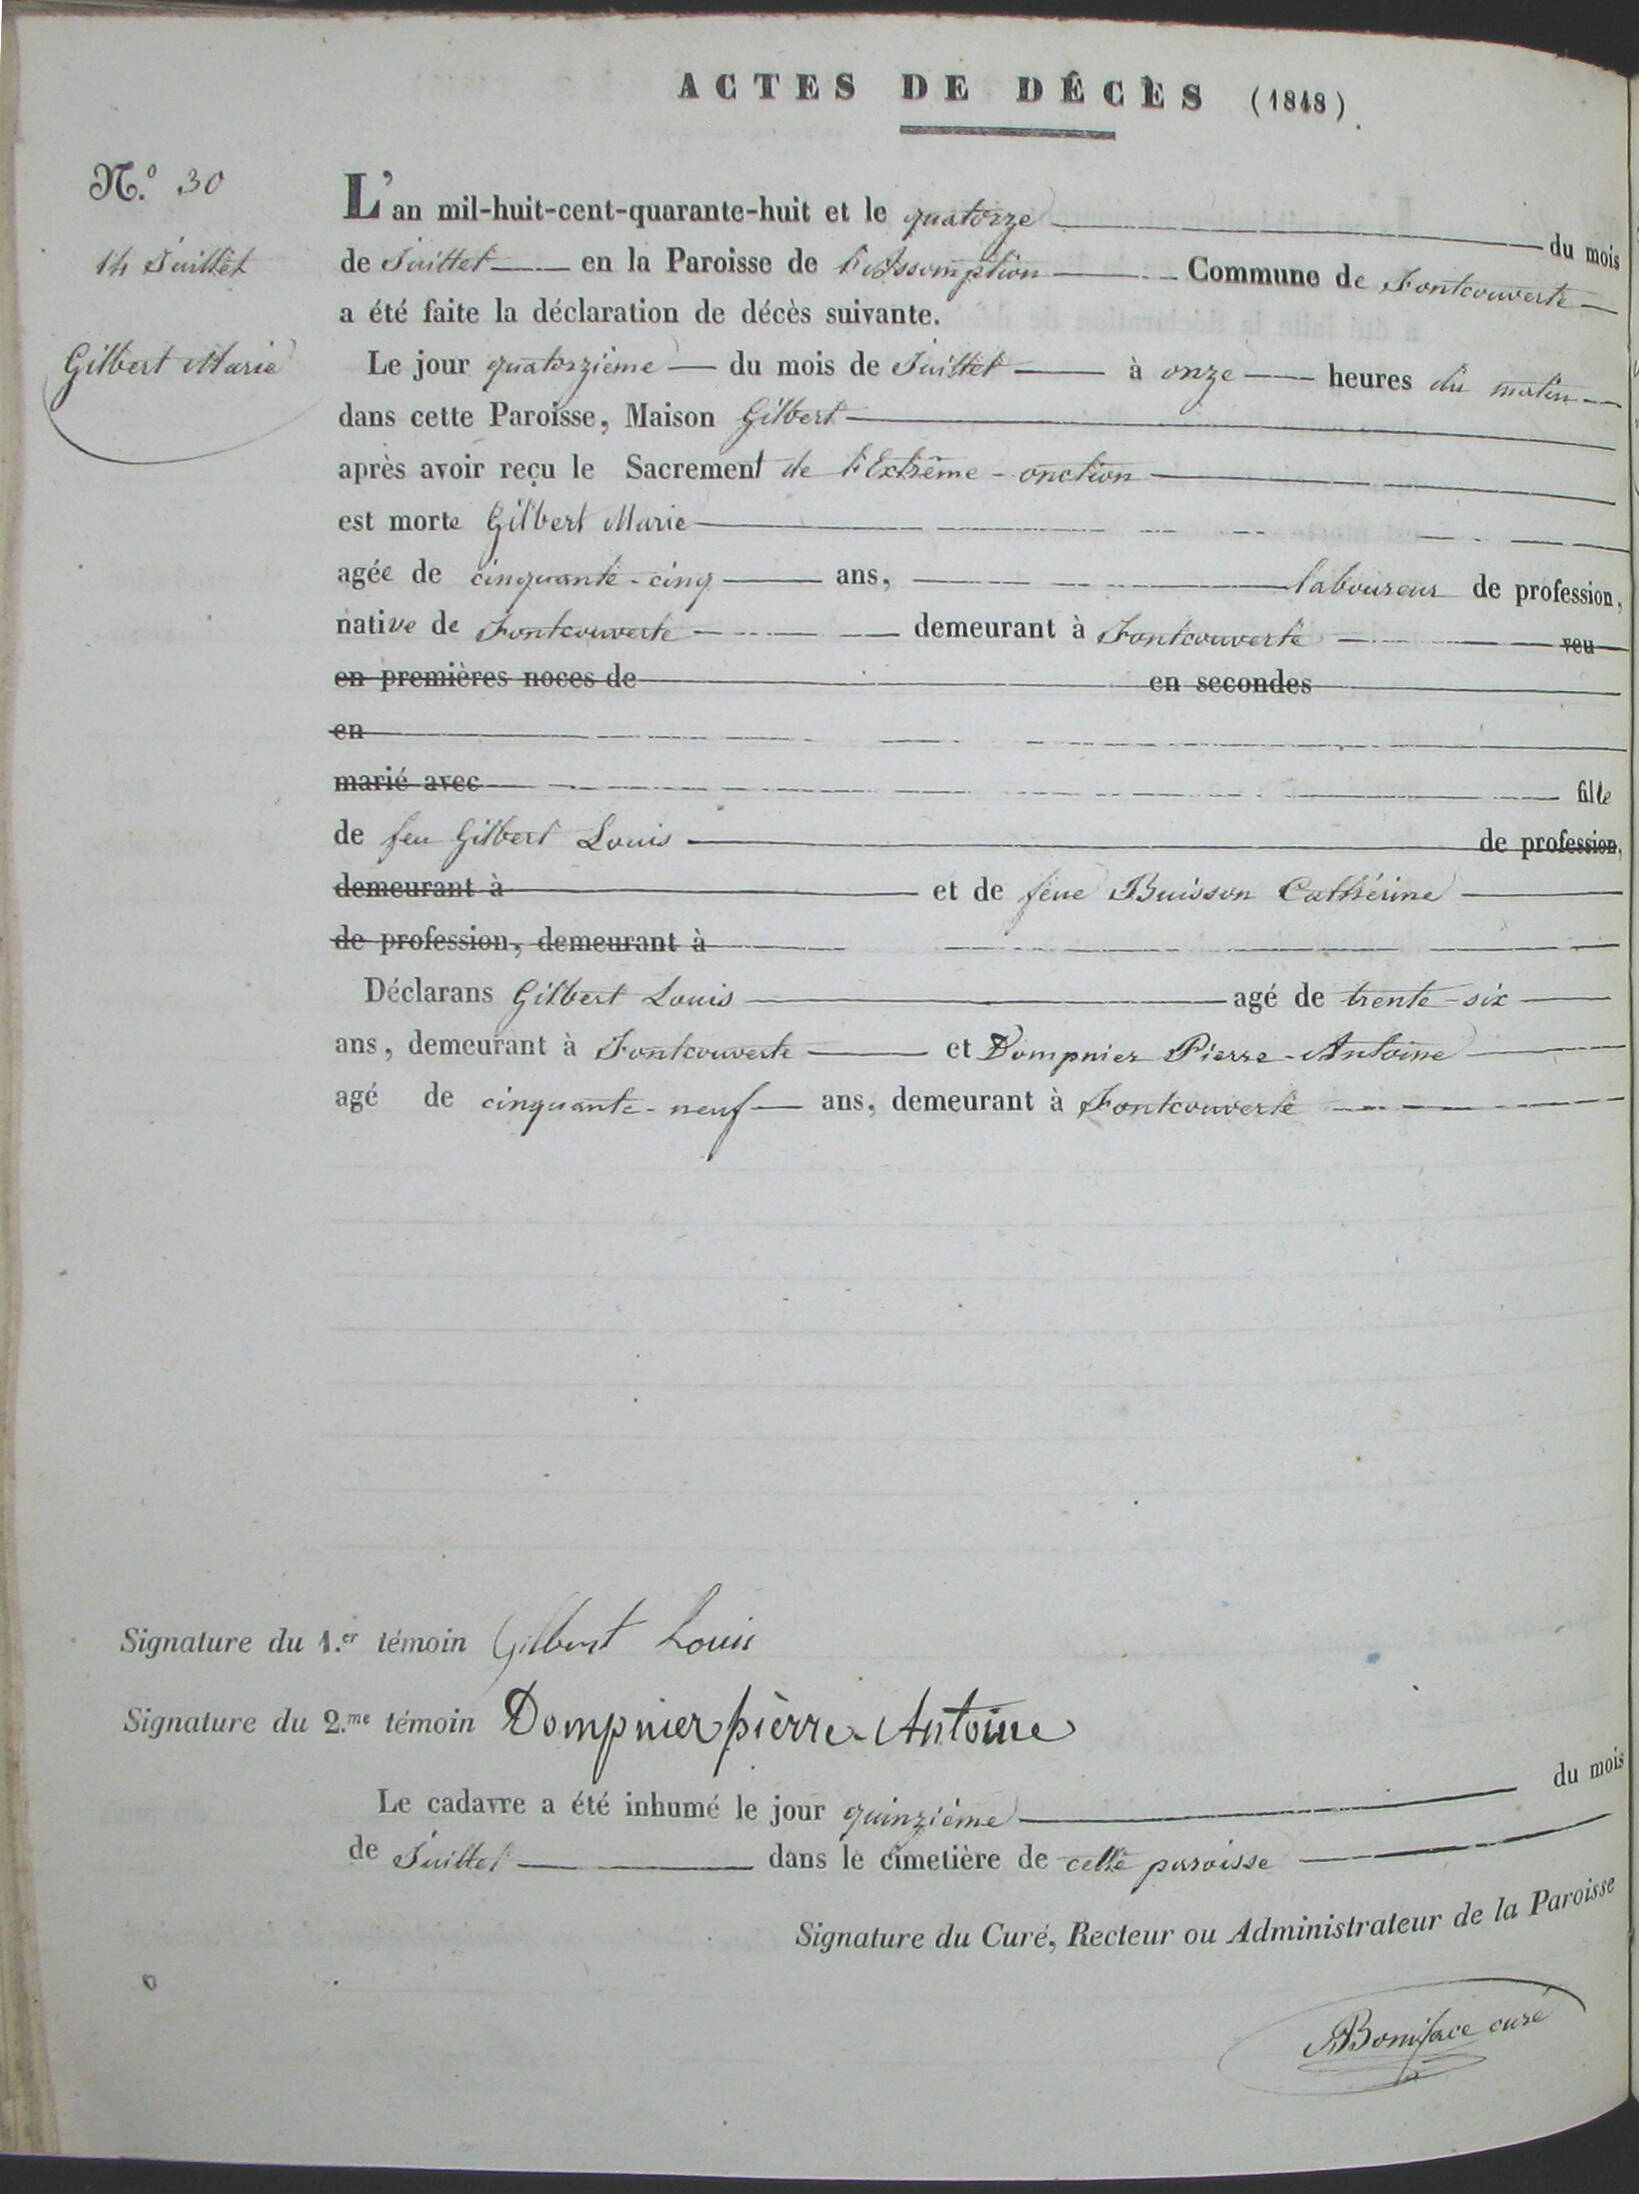 ACTES DE DÉCÈS (1848).
N.º 30
14 Juillet
Gilbert Marie
L'an mil-huit-cent-quarante-huit et le quatorze du mois
de Juillet en la Paroisse de l'Assomption Commune de Fontcouverte
a été faite la déclaration de décès suivante.
Le jour quatorzième du mois de Juillet à onze heures du matin
dans cette Paroisse, Maison Gilbert
après avoir reçu le Sacrement de l'Extrême-onction
est morte Gilbert Marie
agée de cinquante-cinq ans, laboureur de profession,
native de Fontcouverte demeurant à Fontcouverte veu
en premières noces de en secondes
en
marié avec fille
de feu Gilbert Louis de profession,
demeurant à et de feue Buisson Cathérine
de profession, demeurant à
Déclarans Gilbert Louis agé de trente-six
ans, demeurant à Fontcouverte et Dompnier Pierre-Antoine
agé de cinquante-neuf ans, demeurant à Fontcouverte
Signature du 1.er témoin Gilbert Louis
Signature du 2.me témoin Dompnier pièrre-Antoine
Le cadavre a été inhumé le jour quinzième du mois
de Juillet dans le cimetière de cette paroisse
Signature du Curé, Recteur ou Administrateur de la Paroisse
Boniface curé